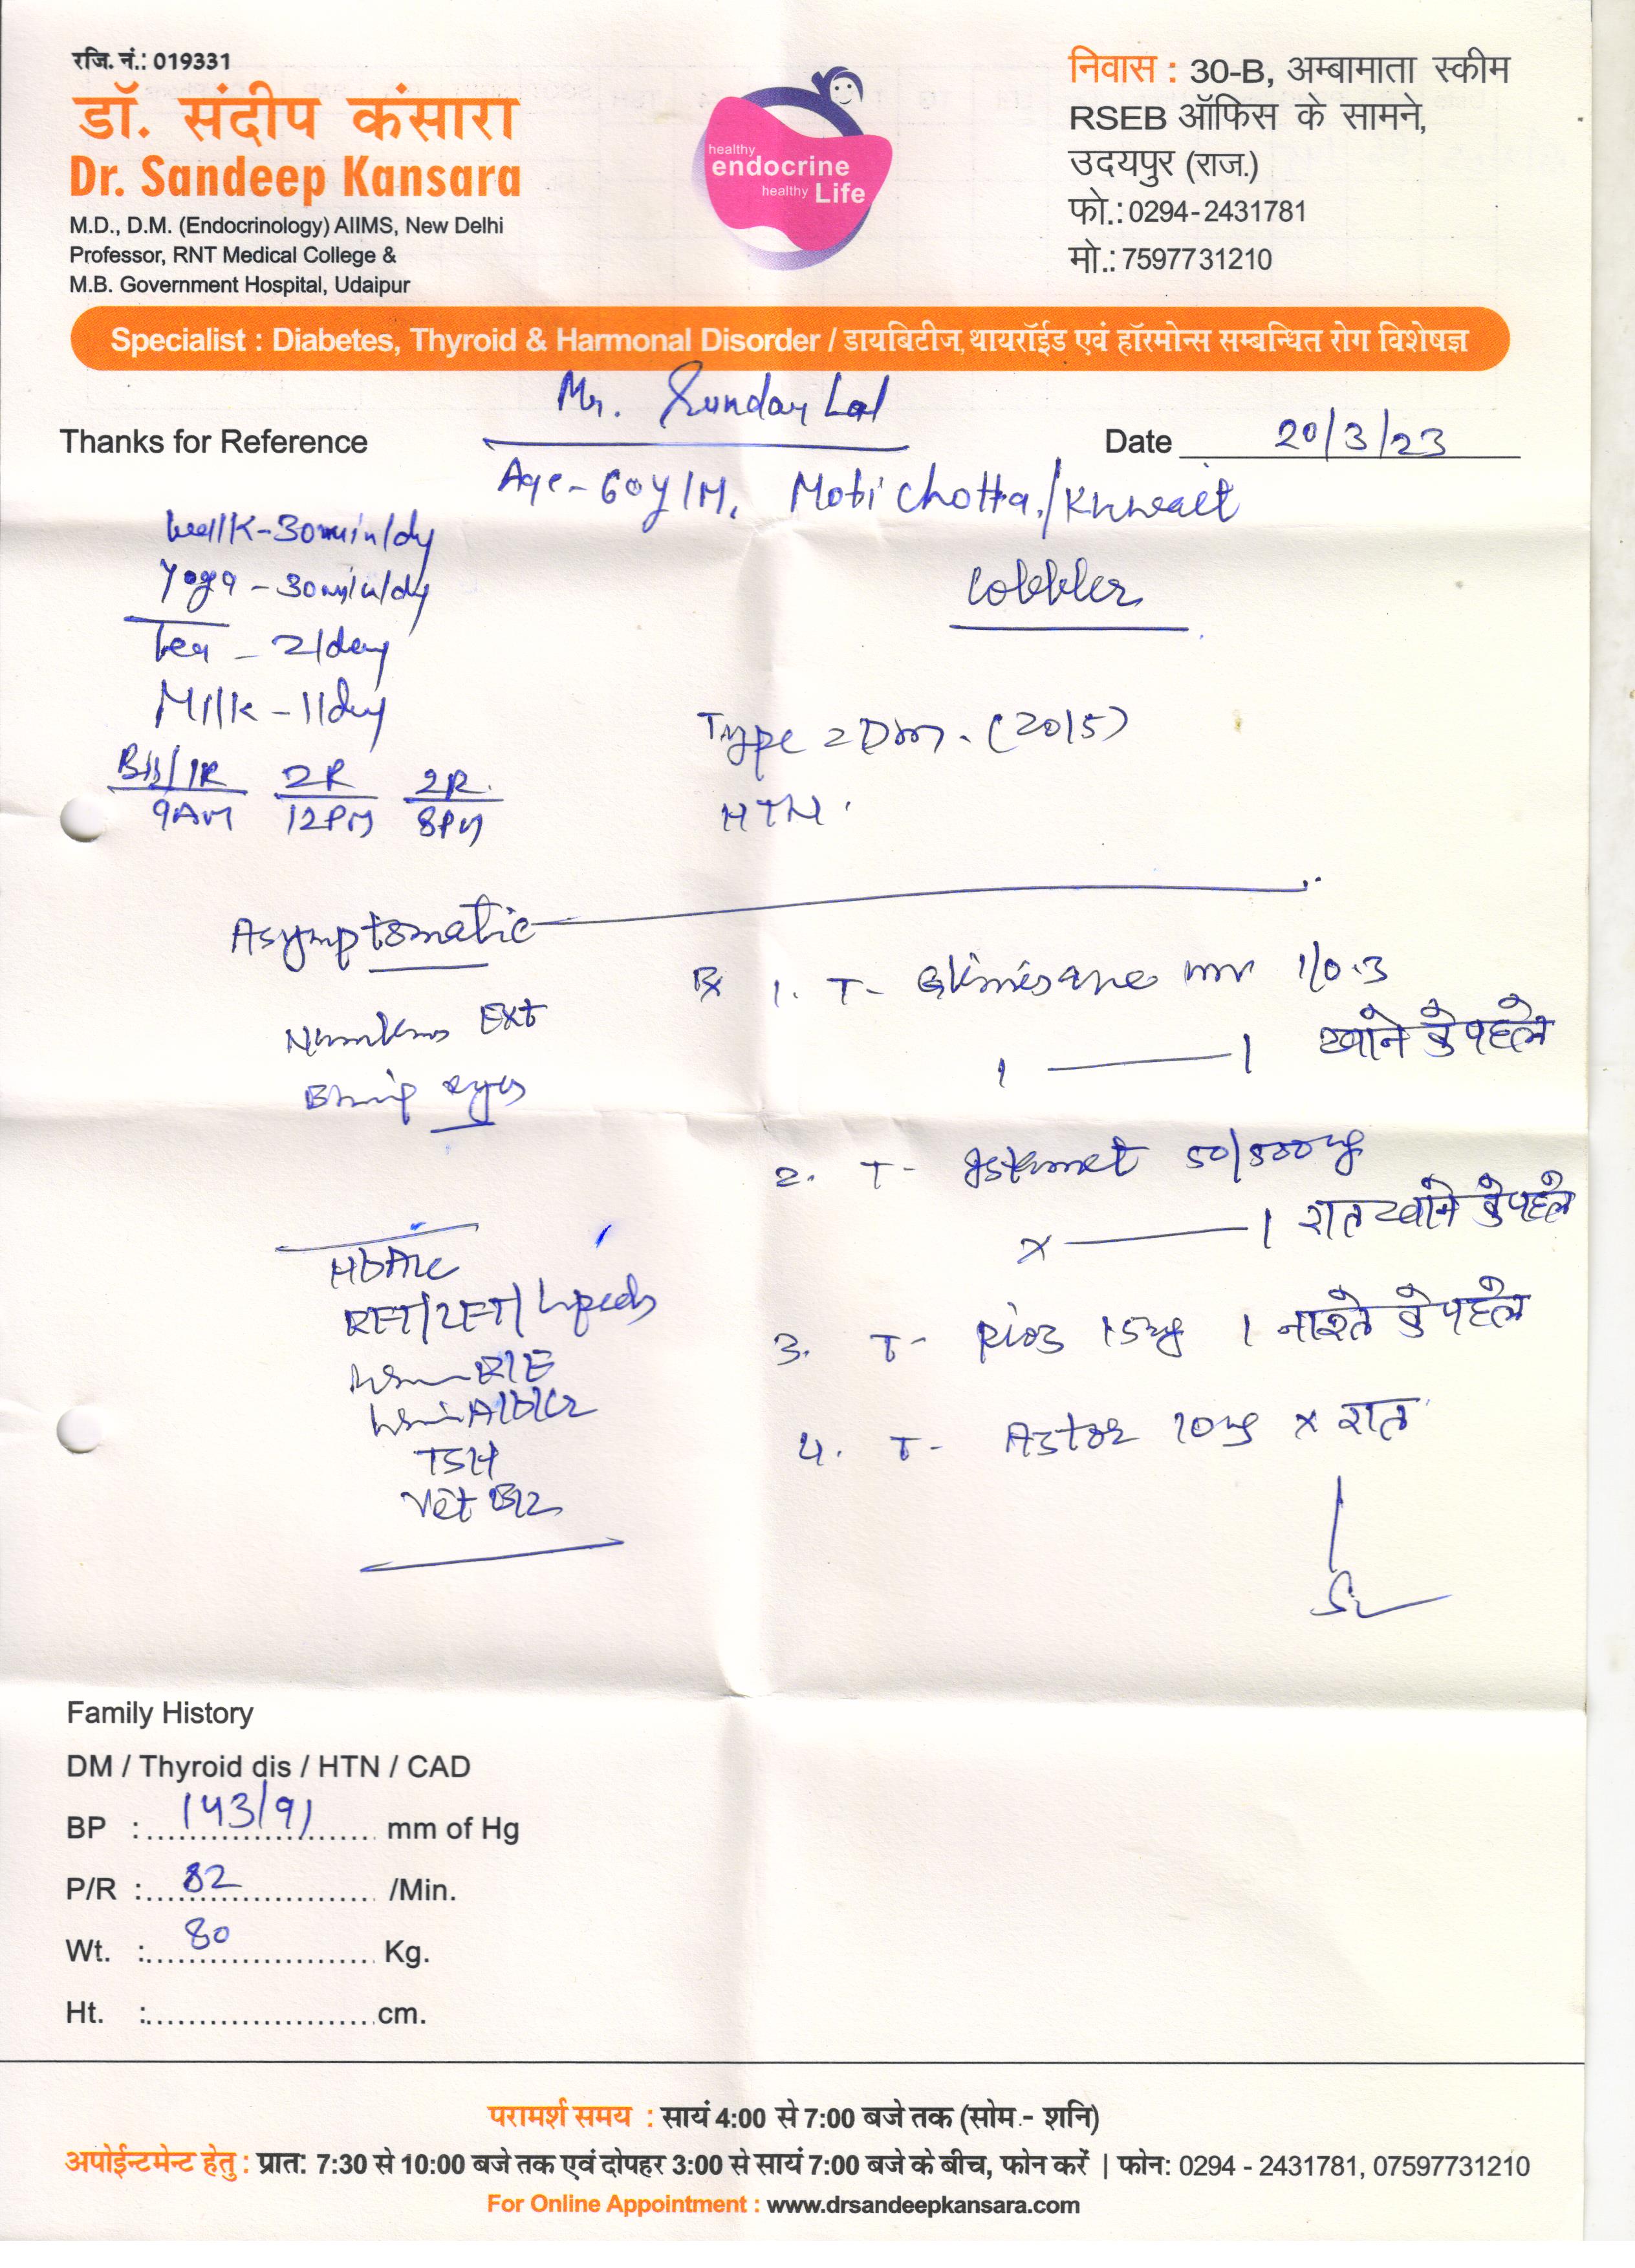 रजि. नं.: 019331
डॉ. संदीप कंसारा
Dr. Sandeep Kansara
M.D., D.M. (Endocrinology) AIIMS, New Delhi
Professor, RNT Medical College &
M.B. Government Hospital, Udaipur
healthy
endocrine
healthy Life
निवास : 30-B, अम्बामाता स्कीम
RSEB ऑफिस के सामने,
उदयपुर (राज.)
फो.: 0294-2431781
मो.: 7597731210
Specialist : Diabetes, Thyroid & Harmonal Disorder / डायबिटीज, थायरॉईड एवं हॉरमोन्स सम्बन्धित रोग विशेषज्ञ
Mr. Sundar Lal
Thanks for Reference
Date 20/3/23
Age - 60y/M, Moti Chotta/
Walk - 30min/dy
Yoga - 30min/dy
Tea - 2/day
Milk - 1/day
Cobbler
Type 2 Dm. (2015)
HTN.
1R 2R 2R.
9AM 12PM 8PM
Asymptomatic
Ext
eyes
Rx 1. T- mv 1/0.3
1 — 1 खाने के पहले
2. T- Istamet 50/500mg
x — 1 रात खाने के पहले
3. T- Pioz 15mg 1 नाश्ते के पहले
4. T- Astor 10mg x रात
HbA1c
RFT/LFT/Lipids
R/E
Alb/Cr
TSH
Vit B12
Family History
DM / Thyroid dis / HTN / CAD
BP : 143/91 mm of Hg
P/R : 82 /Min.
Wt. : 80 Kg.
Ht. : cm.
परामर्श समय : सायं 4:00 से 7:00 बजे तक (सोम - शनि)
अपोईन्टमेन्ट हेतु : प्रात: 7:30 से 10:00 बजे तक एवं दोपहर 3:00 से सायं 7:00 बजे के बीच, फोन करें | फोन: 0294 - 2431781, 07597731210
For Online Appointment : www.drsandeepkansara.com